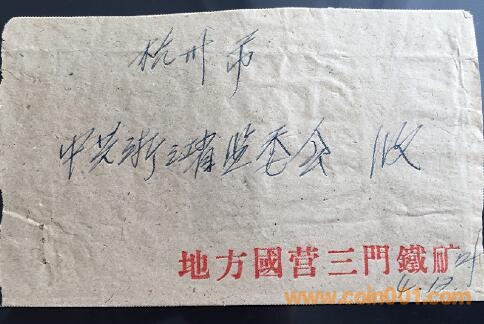 杭州市
中共浙江省监委会 收
地方國营三門鐵矿叶
4.12
www.coin001.com